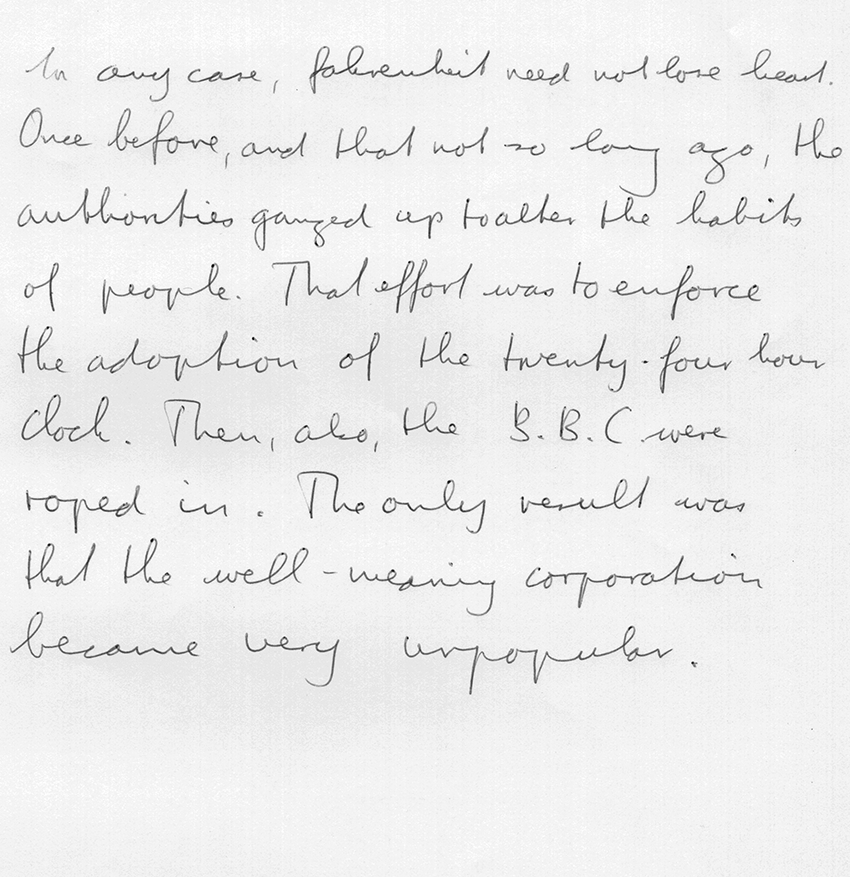 In any case, fahrenheit need not lose heart.
Once before, and that not so long ago, the
authorities ganged up to alter the habits
of people. That effort was to enforce
the adoption of the twenty-four hour
clock. Then, also, the B.B.C were
roped in. The only result was
that the well-meaning corporation
became very unpopular.